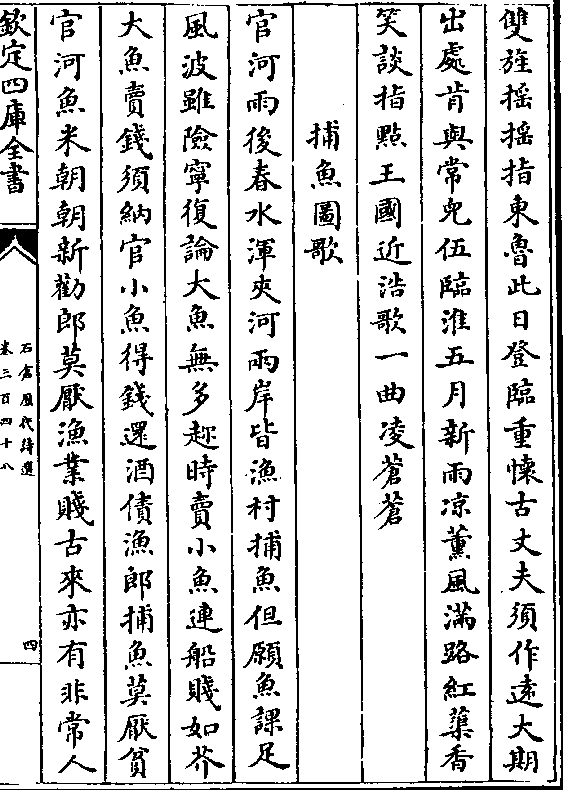 雙旌揺揺指東魯此日登臨重懐古丈夫須作逺大期
出處肯與常兒伍臨淮五月新雨凉薫風滿路紅蕖香
笑談指點王國近浩歌一曲凌蒼蒼
捕魚圖歌
官河雨後春水渾夾河兩岸皆漁村捕魚但願魚課足
風波雖險寧復論大魚無多趂時賣小魚連船賤如芥
大魚賣錢須納官小魚得錢還酒債漁郎捕魚莫厭貧
官河魚米朝朝新勸郎莫厭漁業賤古來亦有非常人
欽定四庫全書
石倉歴代詩選
卷三百四十八
四